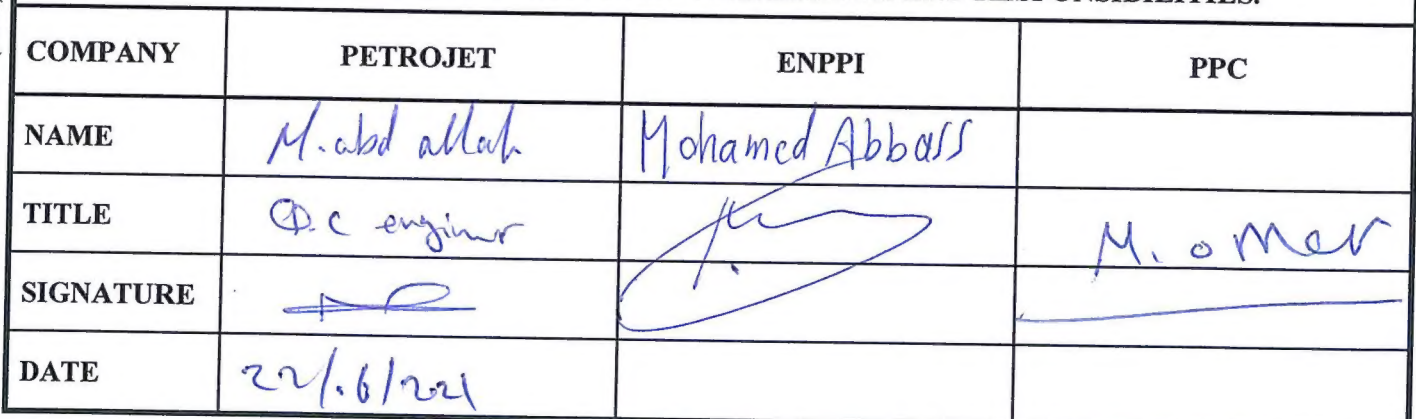 COMPANY PETROJET ENPPI PPC
NAME M. abd allah Mohamed Abbass
TITLE Q.C engineer M. omer
SIGNATURE
DATE